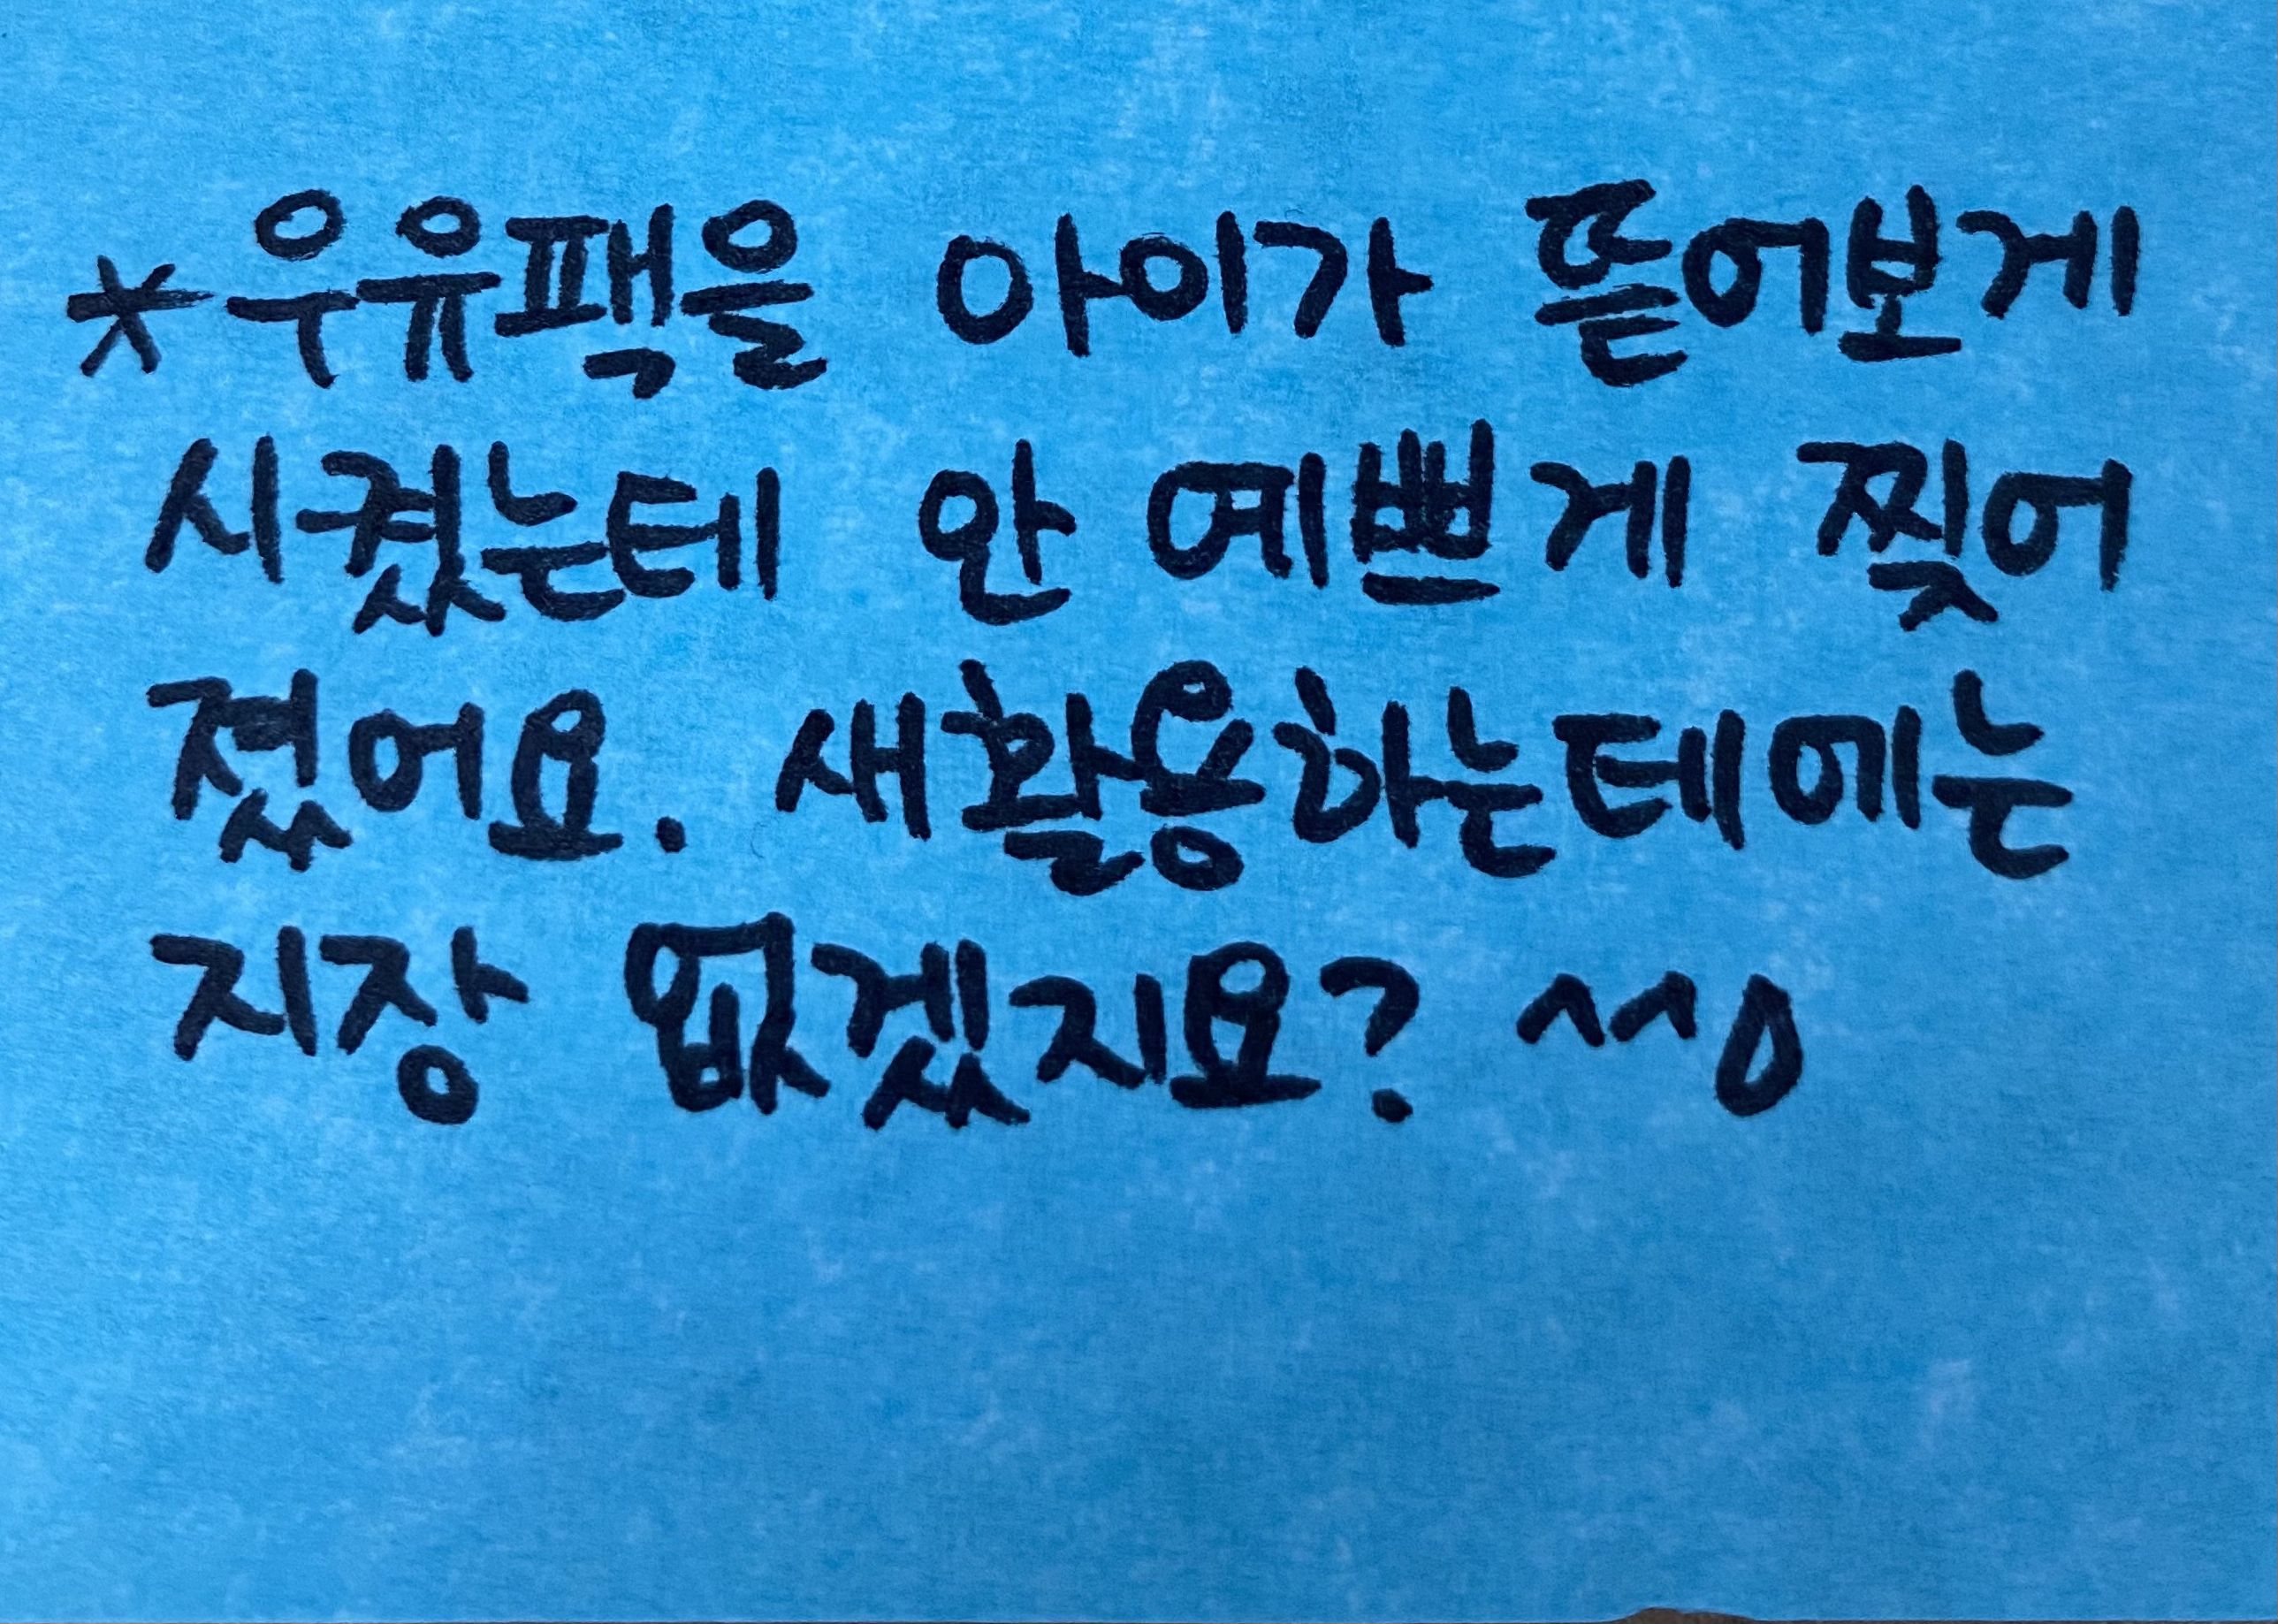 *우유팩을 아이가 뜯어보게
시켰는테 안 예쁘게 찢어
졌어요. 새활용하는테에는
지장 없겠지요? ^^0